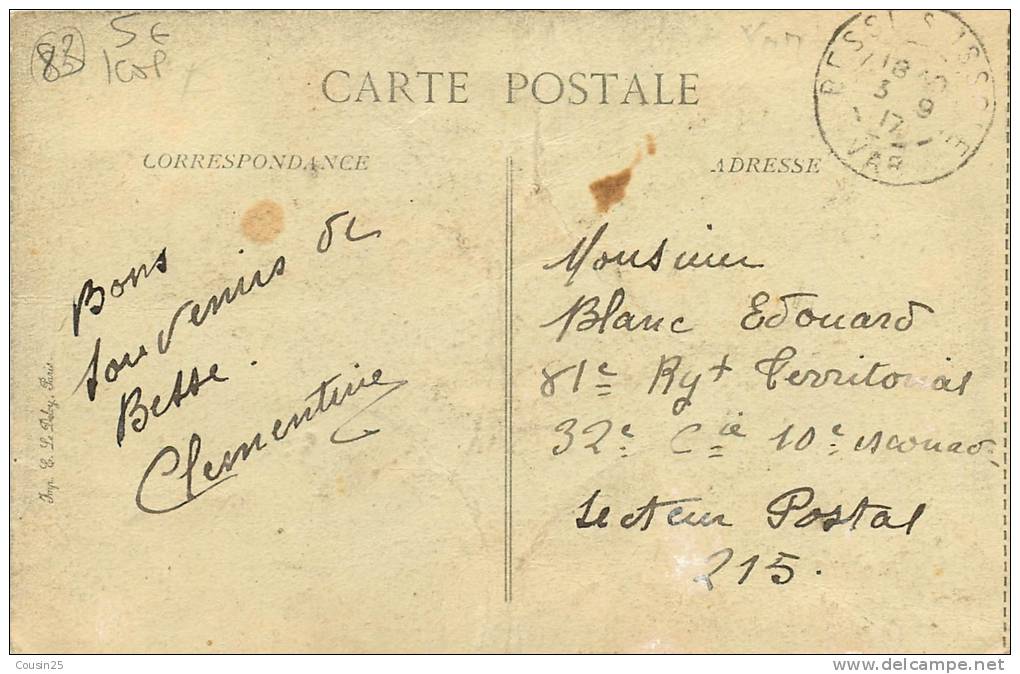 83
5€
CARTE POSTALE
CORRESPONDANCE
ADRESSE
18
5 9
17
VAR
Bons
Souvenirs de
Besse.
Clementine
Monsieur
Blanc Edouard
81e Rgt Territorial
32e Cie 10e escouad.
Secteur Postal
215.
Imp. E. Le Deley, Paris
Cousin25
www.delcampe.net